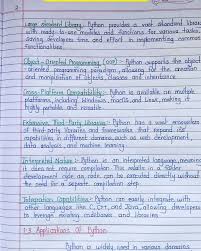 Large standard Library :- Python provides a vast standard library
with ready-to-use modules and functions for various tasks,
saving developers time and effort in implementing common
functionalities.
Object - Oriented Programming (OOP) :- Python supports the object
- oriented programming paradigm, allowing for the creation
and manipulation of objects, classes and inheritance.
Cross-Platform Compatibility :- Python is available on multiple
platforms, including Windows, macOS, and Linux, making it
highly portable and versatile.
Extensive Third-Party Libraries :- Python has a vast ecosystem
of third-party libraries and frameworks that expand its
capabilities in different domains, such as web development,
data analysis, and machine learning.
Interpreted Nature :- Python is an interpreted language, meaning
it does not require compilation. This results in a faster
development cycle as code can be executed directly without
the need for a separate compilation step.
Integration Capabilities :- Python can easily integrate with
other languages like C, C++, and Java, allowing developers
to leverage existing codebases and libraries.
1.3 Applications Of Python
Python is widely used in various domains